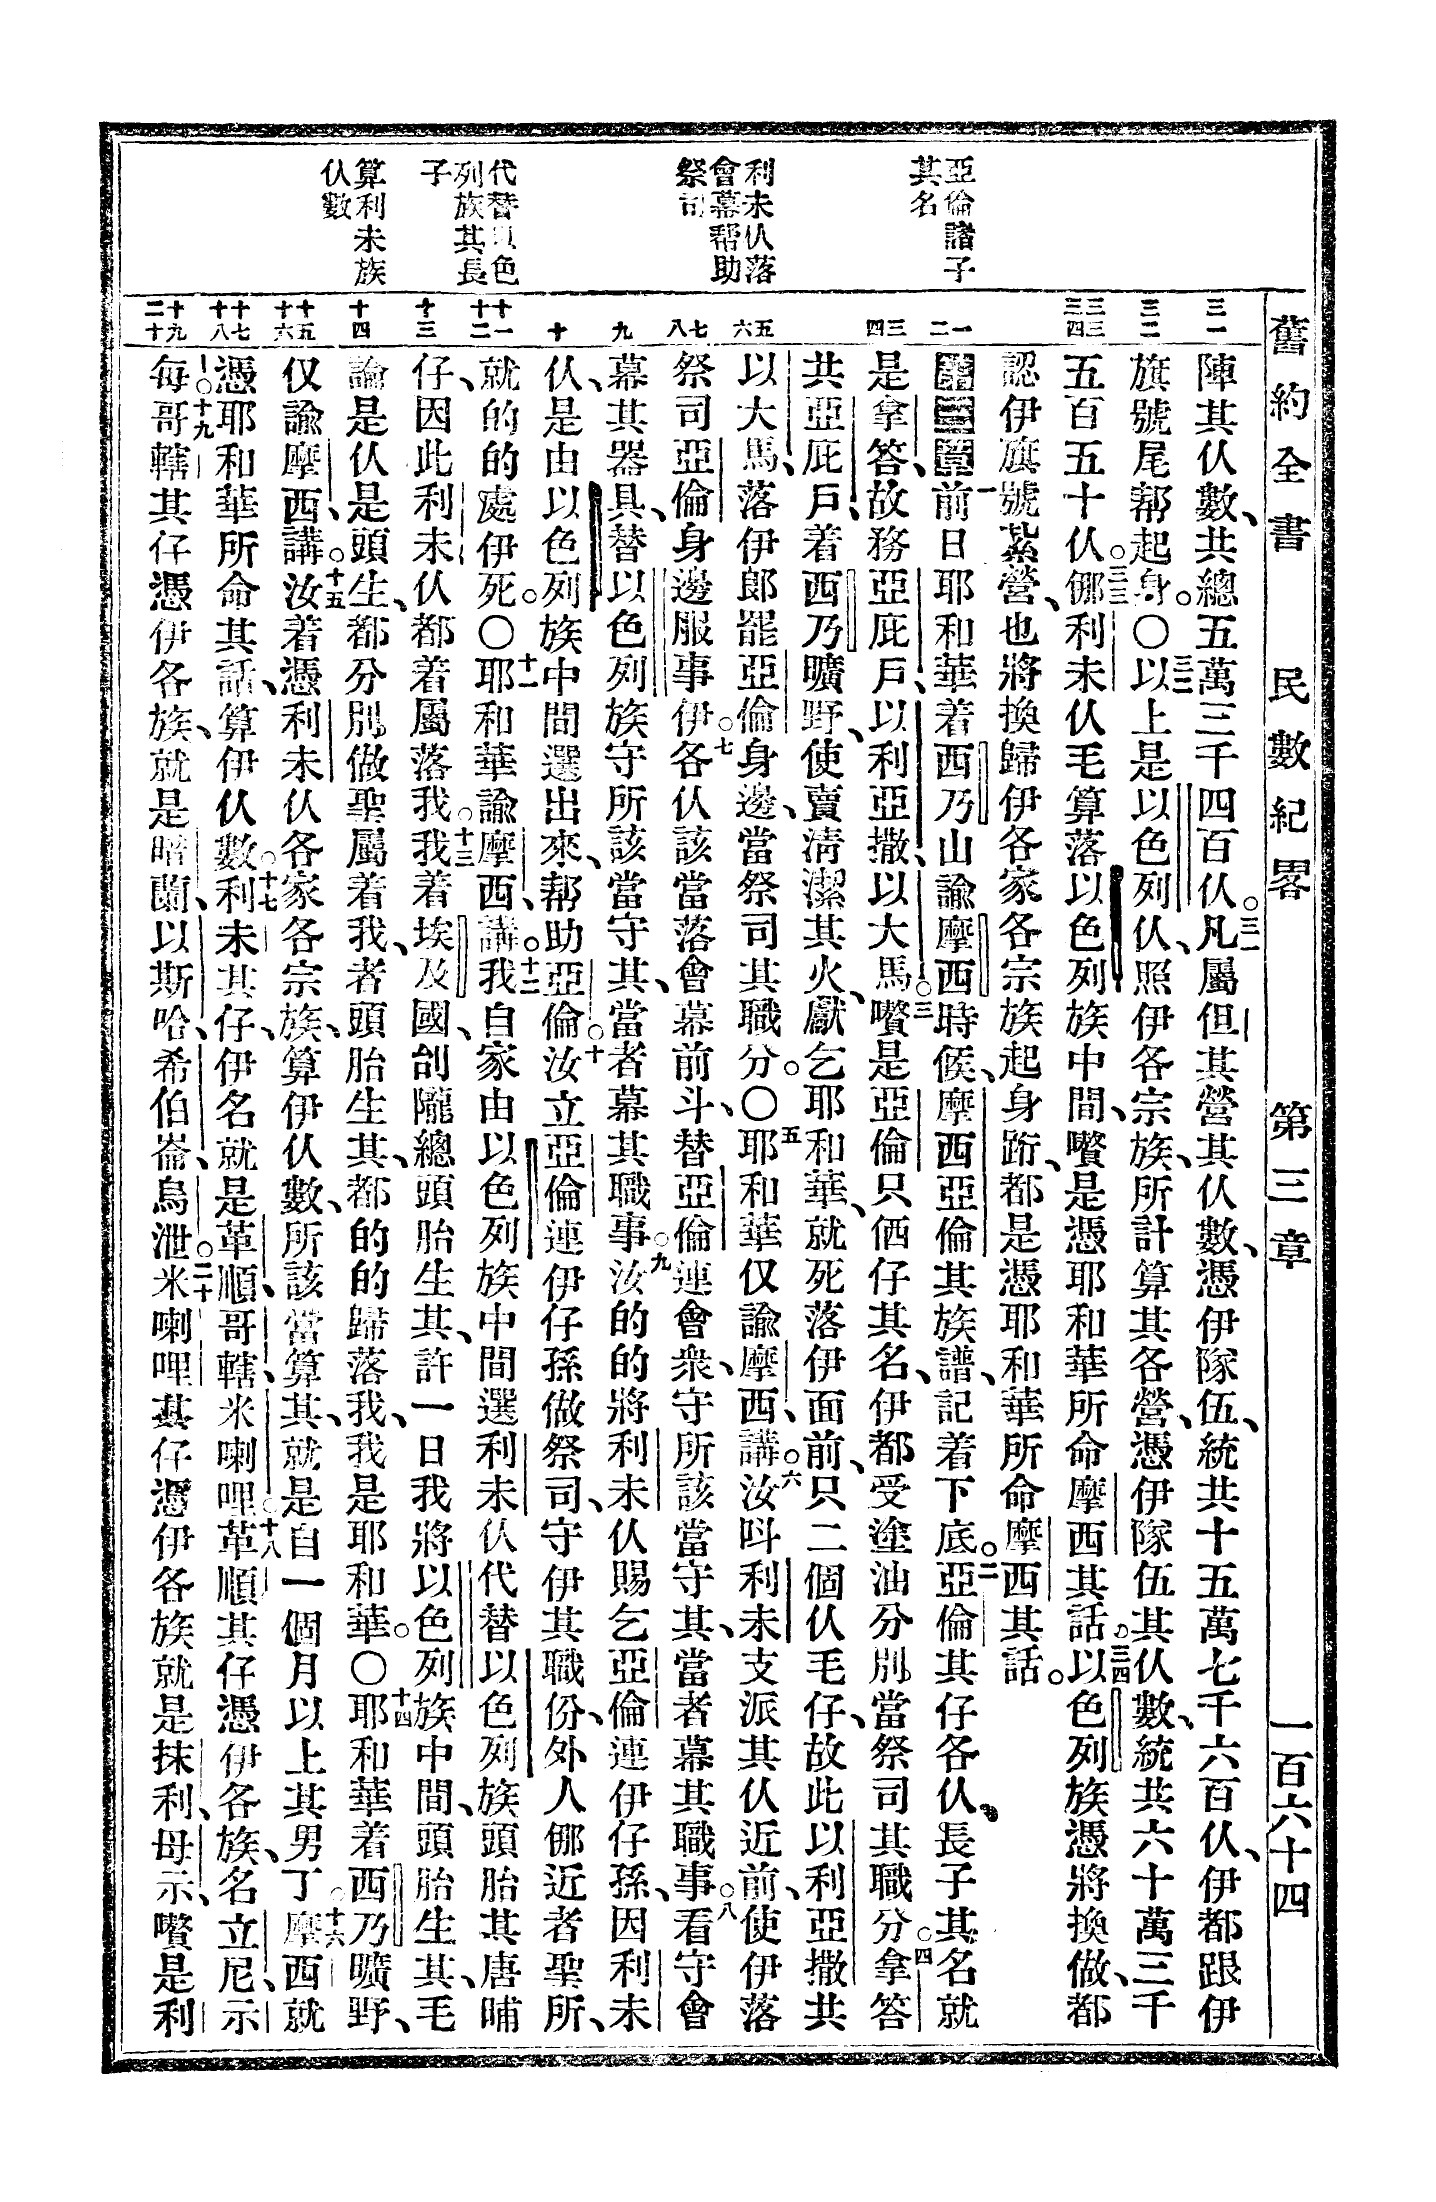 舊約全書　民數紀畧　第三章　一百六十四
亞倫諸子
其名
利未仈落
會幕帮助
祭司
代替以色
列族其長
子
算利未族
仈數
三一
三二
三三　三四
一　二
三　四
五　六
七　八
九
十
十一　十二
十三
十四
十五　十六
十七　十八
十九　二十
陣其仈數、共總五萬三千四百仈。三一凡屬但其營其仈數、憑伊隊伍、統共十五萬七千六百仈、伊都跟伊
旗號尾帮起身。〇三二以上是以色列仈、照伊各宗族、所計算其各營、憑伊隊伍其仈數、統共六十萬三千
五百五十仈。三三㑚利未仈毛算落以色列族中間、嚽是憑耶和華所命摩西其話。三四以色列族憑將換做、都
認伊旗號紮營、也將換歸伊各家各宗族起身跔、都是憑耶和華所命摩西其話。
第三章一前日耶和華着西乃山諭摩西時候、摩西亞倫其族譜、記着下底。二亞倫其仔各仈、長子其名就
是拿答、故務亞庇戶、以利亞撒、以大馬。三嚽是亞倫只価仔其名、伊都受塗油分別當祭司其職分。四拿答
共亞庇戶着西乃曠野、使賣淸潔其火、獻乞耶和華、就死落伊面前、只二個仈毛仔、故此以利亞撒共
以大馬、落伊郎罷亞倫身邊、當祭司其職分。〇五耶和華仅諭摩西、講。六汝呌利未支派其仈近前、使伊落
祭司亞倫身邊服事伊。七各仈該當落會幕前斗、替亞倫連會衆、守所該當守其、當者幕其職事。八看守會
幕其器具、替以色列族守所該當守其、當者幕其職事。九汝的的將利未仈賜乞亞倫連伊仔孫、因利未
仈、是由以色列族中間選出來、帮助亞倫。十汝立亞倫連伊仔孫做祭司、守伊其職份、外人㑚近者聖所、
就的的處伊死。〇十一耶和華諭摩西、講。十二我自家由以色列族中間選利未仈代替以色列族頭胎其唐晡
仔、因此利未仈都着屬落我。十三我着埃及國、刣隴總頭胎生其、許一日我將以色列族中間、頭胎生其、毛
論是仈是頭生、都分別做聖屬着我、者頭胎生其、都的的歸落我、我是耶和華。〇十四耶和華着西乃曠野、
仅諭摩西、講。十五汝着憑利未仈各家各宗族、算伊仈數、所該當算其、就是自一個月以上其男丁。十六摩西就
憑耶和華所命其話、算伊仈數。十七利未其仔、伊名就是革順、哥轄、米喇哩。十八革順其仔憑伊各族、名立尼、示
每。十九哥轄其仔憑伊各族、就是暗蘭、以斯哈、希伯崙、烏泄。二十米喇哩其仔憑伊各族就是抹利、母示、嚽是利